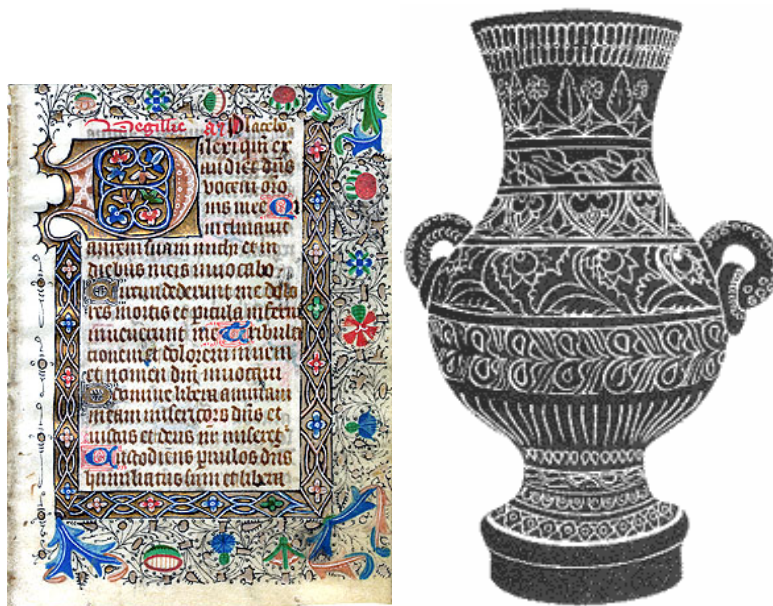 Vegilie añ Placebo
Dilexi qm ex
audiet dns
vocem oro
nis mee Q
inclinauit
aurem suam michi et in
diebus meis inuocabo
Circundederunt me dolo
res mortis et picula inferni
inuenerunt me Tribula
tionem et dolorem inueni
et nomen dni inuocaui
O domine libera animam
meam misericors dns et
iustus et deus nr miseret
Custodiens paruulos dns
humiliatus sum et libera